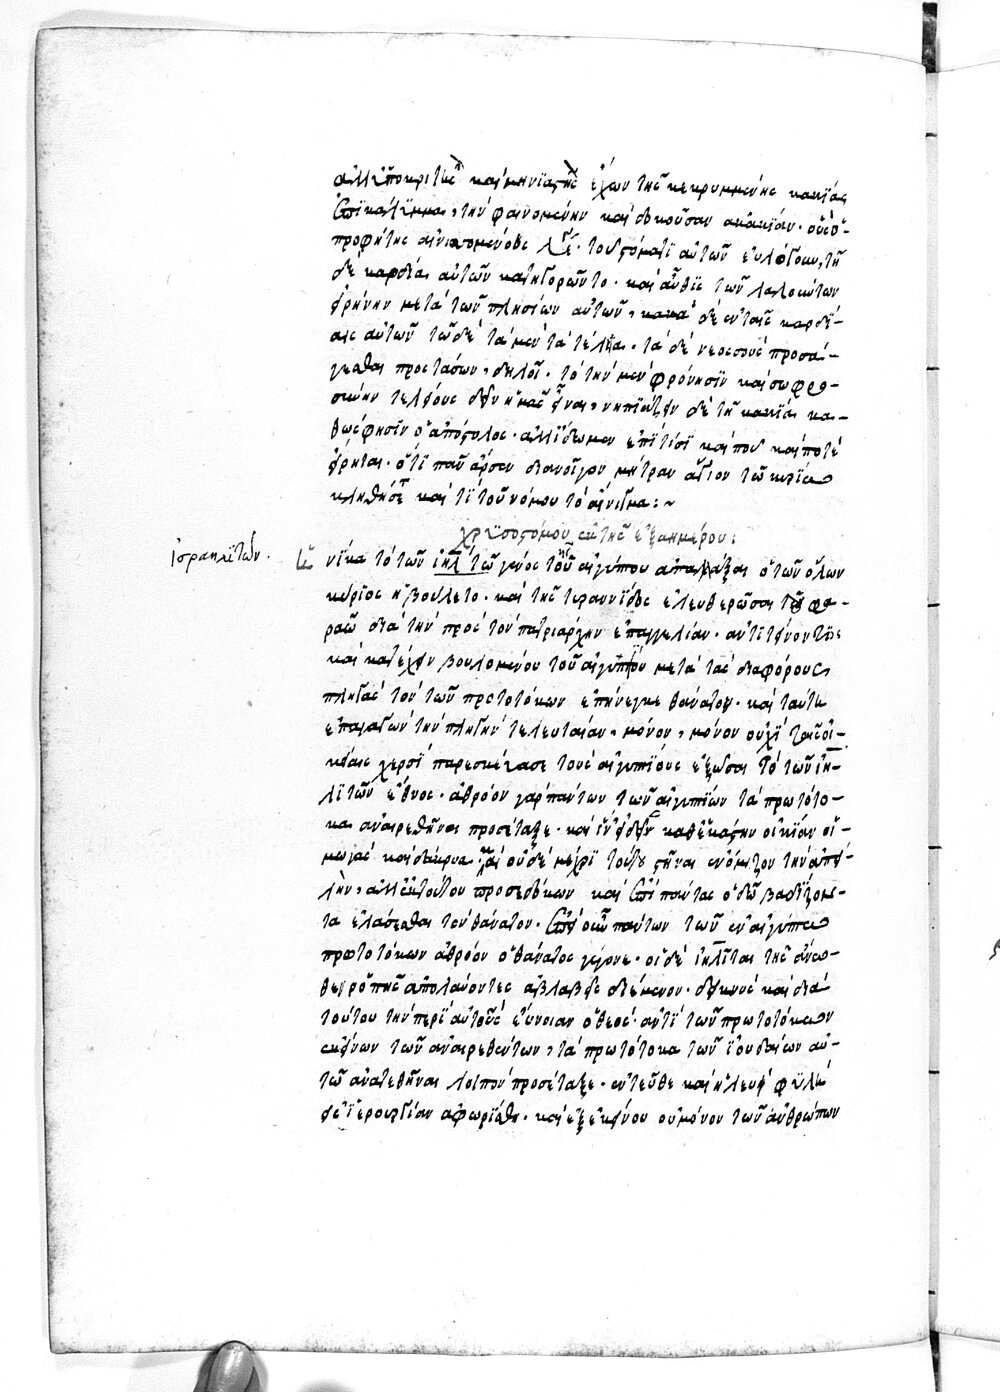 ἀλλ' ὑποκριτὴς καὶ μηνιαστὴς ἔχων τῆς κεκρυμμένης κακίας
ἐπικάλυμμα, τὴν φαινομένην καὶ δοκοῦσαν ἀκακίαν. οὓς ὁ
προφήτης αἰνιττόμενος τῷ στόματι αὐτῶν εὐλόγουν, τῇ
δὲ καρδίᾳ αὐτῶν κατηρῶντο. καὶ αὖθις τῶν λαλούντων
εἰρήνην μετὰ τῶν πλησίον αὐτῶν, κακὰ δὲ ἐν ταῖς καρδί-
αις αὐτῶν τῶδε τὰ μὲν τὰ τέλεια. τὰ δὲ νεοσσοὺς προσά-
γεσθαι προστάσσων, δηλοῖ. τὸ τὴν μὲν φρόνησιν καὶ σωφρο-
σύνην τελείους δεῖν ἡμᾶς εἶναι, νηπιάζειν δὲ τῇ κακίᾳ κα-
θώς φησιν ὁ ἀπόστολος. ἀλλ' ἴδωμεν ἐπὶ τίσι καὶ ποῦ καὶ ποτὲ
εἴρηται. ὅτι πᾶν ἄρσεν διανοῖγον μήτραν ἅγιον τῷ κυρίῳ
κληθήσεται καὶ τί τοῦ νόμου τὸ αἴνιγμα :~
χρυσοστόμου, ἐκ τῆς ἑξαημέρου :
ἰσραηλιτῶν.
ἡνίκα τὸ τῶν ἰηλτῶν γένος τῶν αἰγύπτου ἀπαλλάξαι ὁ τῶν ὅλων
κύριος ἠβούλετο. καὶ τῆς τυραννίδος ἐλευθερῶσαι τοῦ φα-
ραὼ διὰ τὴν πρὸς τὸν πατριάρχην ἐπαγγελίαν. ἀντιτείνοντος
καὶ κατέχειν βουλομένου τοῦ αἰγυπτίου μετὰ τὰς διαφόρους
πληγὰς τὸν τῶν πρωτοτόκων ἐπήνεγκε θάνατον. καὶ ταύτην
ἐπαγαγὼν τὴν πληγὴν τελευταίαν, μόνον, μόνον οὐχὶ ταῖς οἰ-
κείαις χερσὶ παρεσκεύασε τοὺς αἰγυπτίους ἐξῶσαι τὸ τῶν ἰη-
λιτῶν ἔθνος. ἀθρόον γὰρ πάντων τῶν αἰγυπτίων τὰ πρωτότο-
κα ἀναιρεθῆναι προσέταξε. καὶ ἦν ἰδεῖν καθ' ἑκάστην οἰκίαν οἰ-
μωγὰς καὶ δάκρυα. καὶ οὐδὲ μέχρι τούτου στῆναι ἐνόμιζον τὴν ἀπει-
λὴν, ἀλλ' ἐκ τούτου προσεδόκων καὶ ἐπὶ πάντας ὁδῷ βαδίζον-
τα ἐλάσεσθαι τὸν θάνατον. ἐπεὶ οὖν πάντων τῶν ἐν αἰγύπτῳ
πρωτοτόκων ἀθρόον ὁ θάνατος γέγονε. οἱ δὲ ἰηλῖται τῆς ἄνω-
θεν ῥοπῆς ἀπολαύοντες ἀβλαβεῖς διέμενον. δεικνὺς καὶ διὰ
τούτου τὴν περὶ αὐτοὺς εὔνοιαν ὁ θεὸς. ἀντὶ τῶν πρωτοτόκων
ἐκείνων τῶν ἀναιρεθέντων, τὰ πρωτότοκα τῶν ἰουδαίων αὐ-
τῷ ἀνατεθῆναι λοιπὸν προσέταξε. ἐντεῦθεν καὶ ἡ λευὶ φυλὴ
εἰς ἱερουργίαν ἀφωρίσθη. καὶ ἐξ ἐκείνου οὐ μόνον τῶν ἀνθρώπων